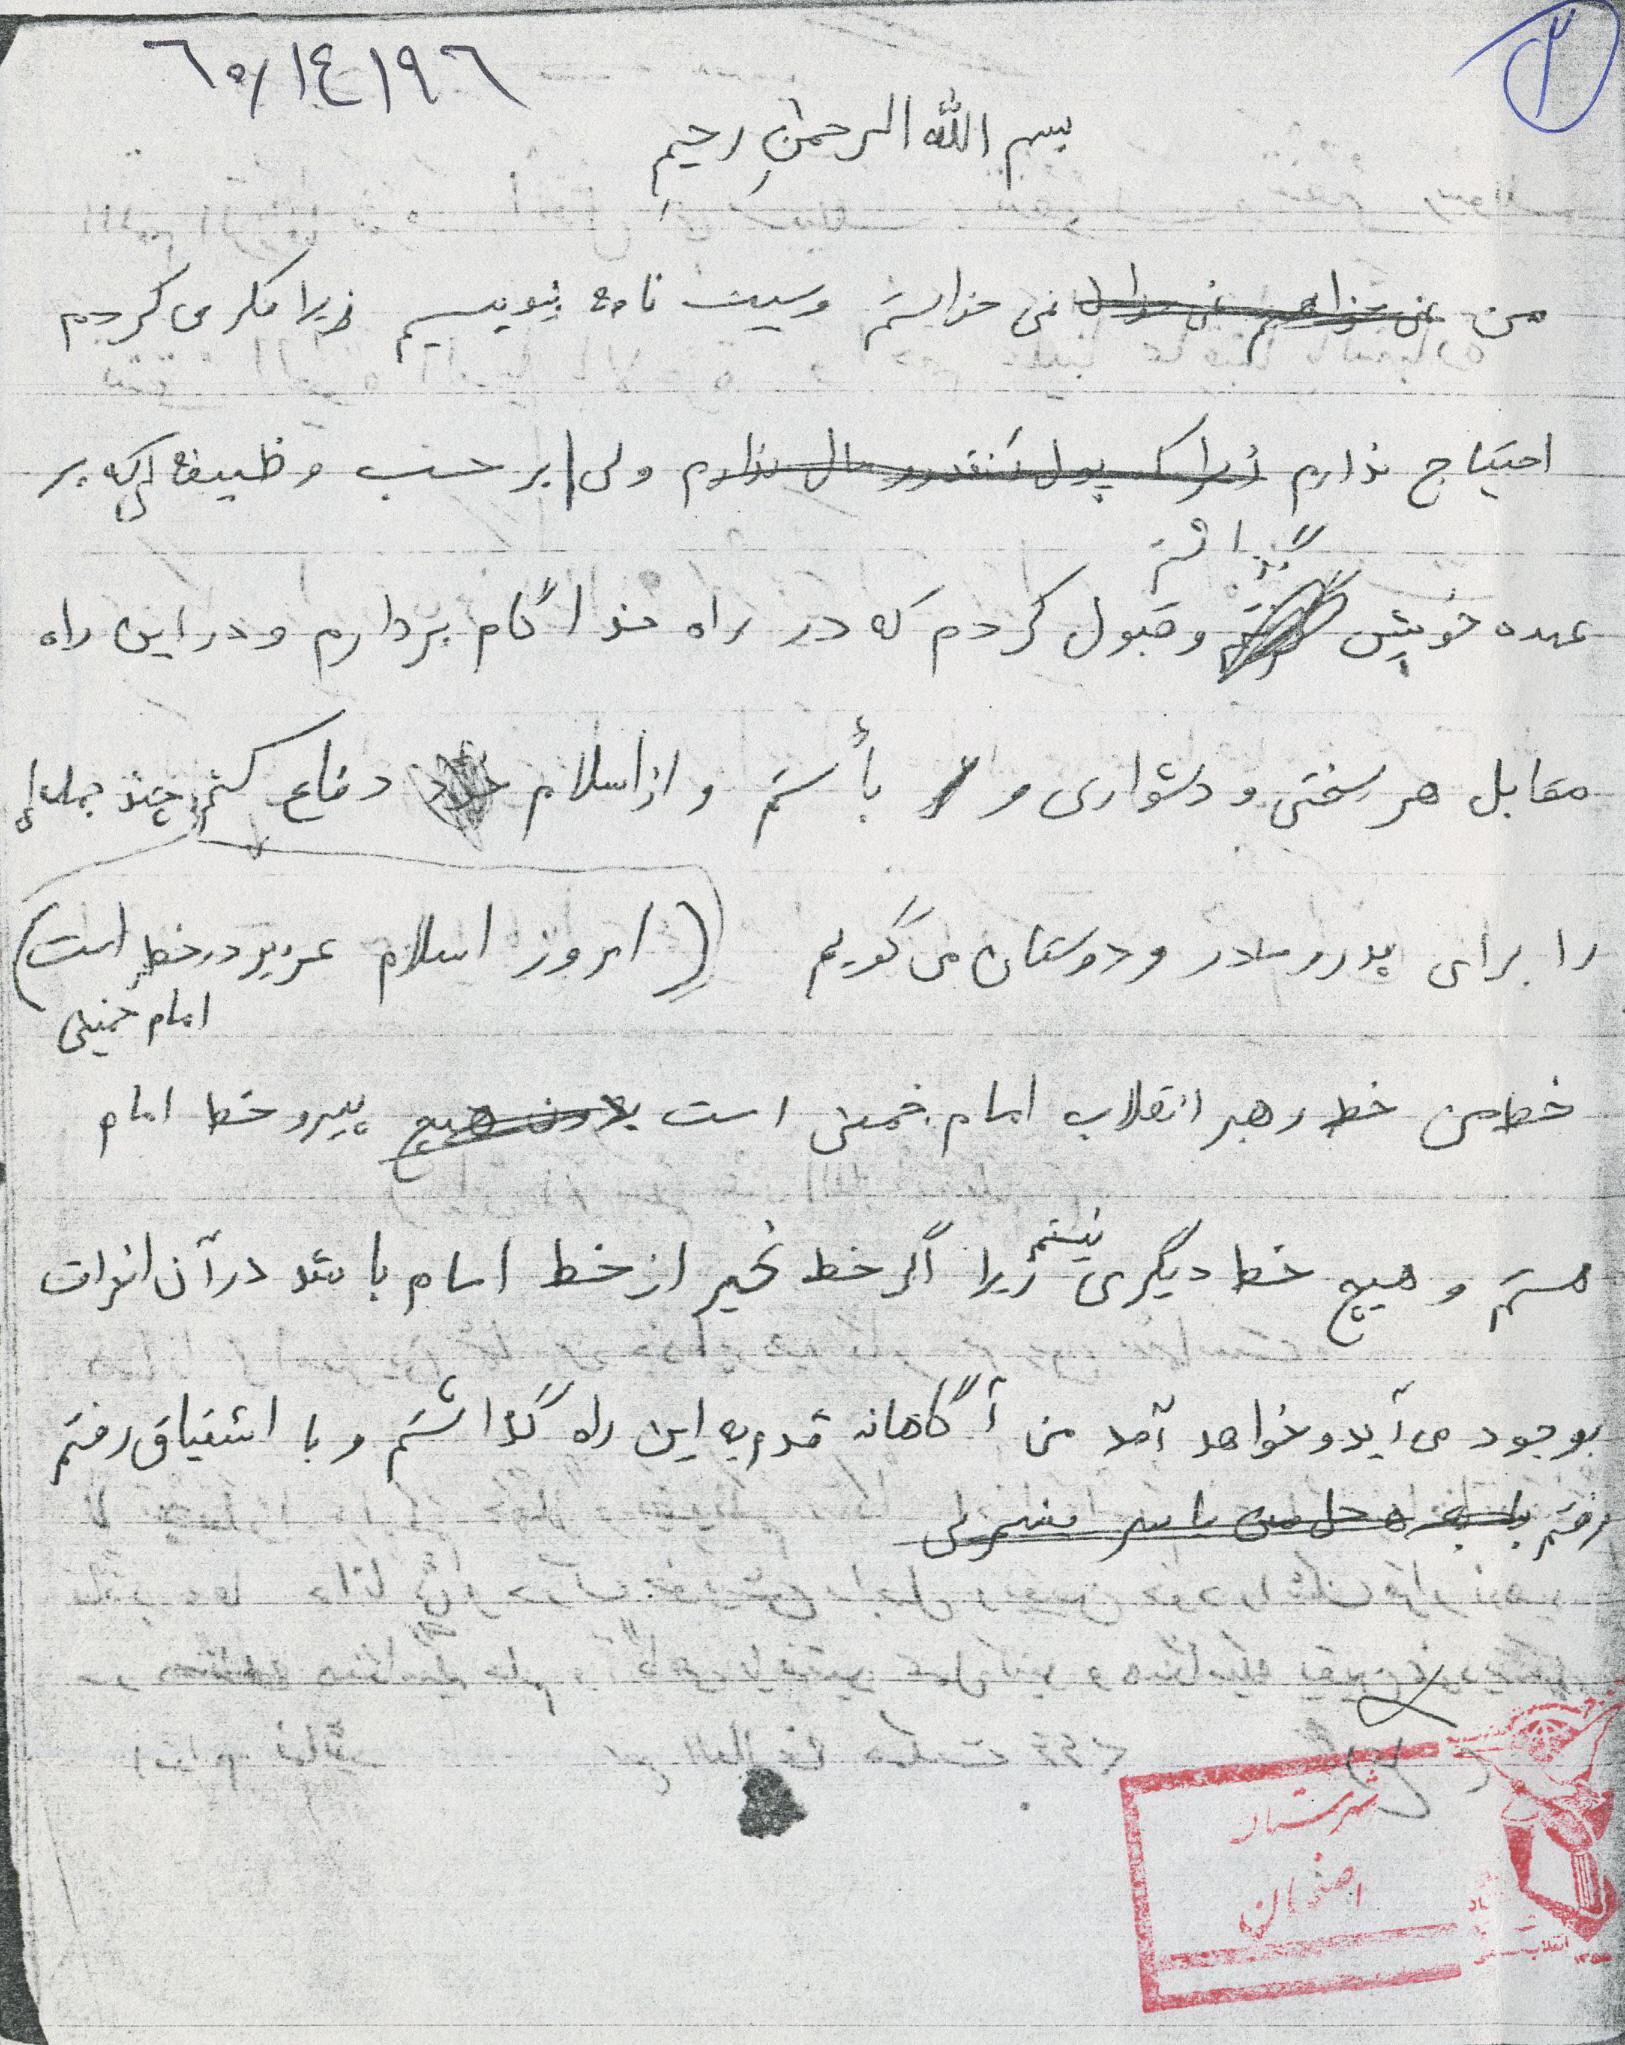 ۲
۶۰/۱۴۱۹۶
بسم الله الرحمنِ رحیمِ
من نمی خواهم نمی خوا نمی خواستم وسیت نامه بنویسیم زیرا فکر می کردم
احتیاج ندارم زیرا که پول نقد و مال ندارم ولی بر حسب وظیفه ای که بر
گذاشتم
عهده خویش وقبول کردم که در راه خدا گام بردارم و در این راه
مقابل هر سختی و دشواری و بأستم و از اسلام دفاع کنم چند جمله‌ای
را برای پدر و مادر و دوستان می گویم (( امروز اسلام عزیز در خطر است)
امام خمینی
خط من خط رهبر انقلاب امام خمینی است بدون هیچ پیرو خط امام
هستم و هیچ خط دیگری نیستم زیرا اگر خط غیر از خط امام باشد در آن انحراف
بوجود می آید و خواهد آمد من آگاهانه قدم به این راه گذاشتم و با اشتیاق رفتم
رفتم
شهرستان
اصفهان